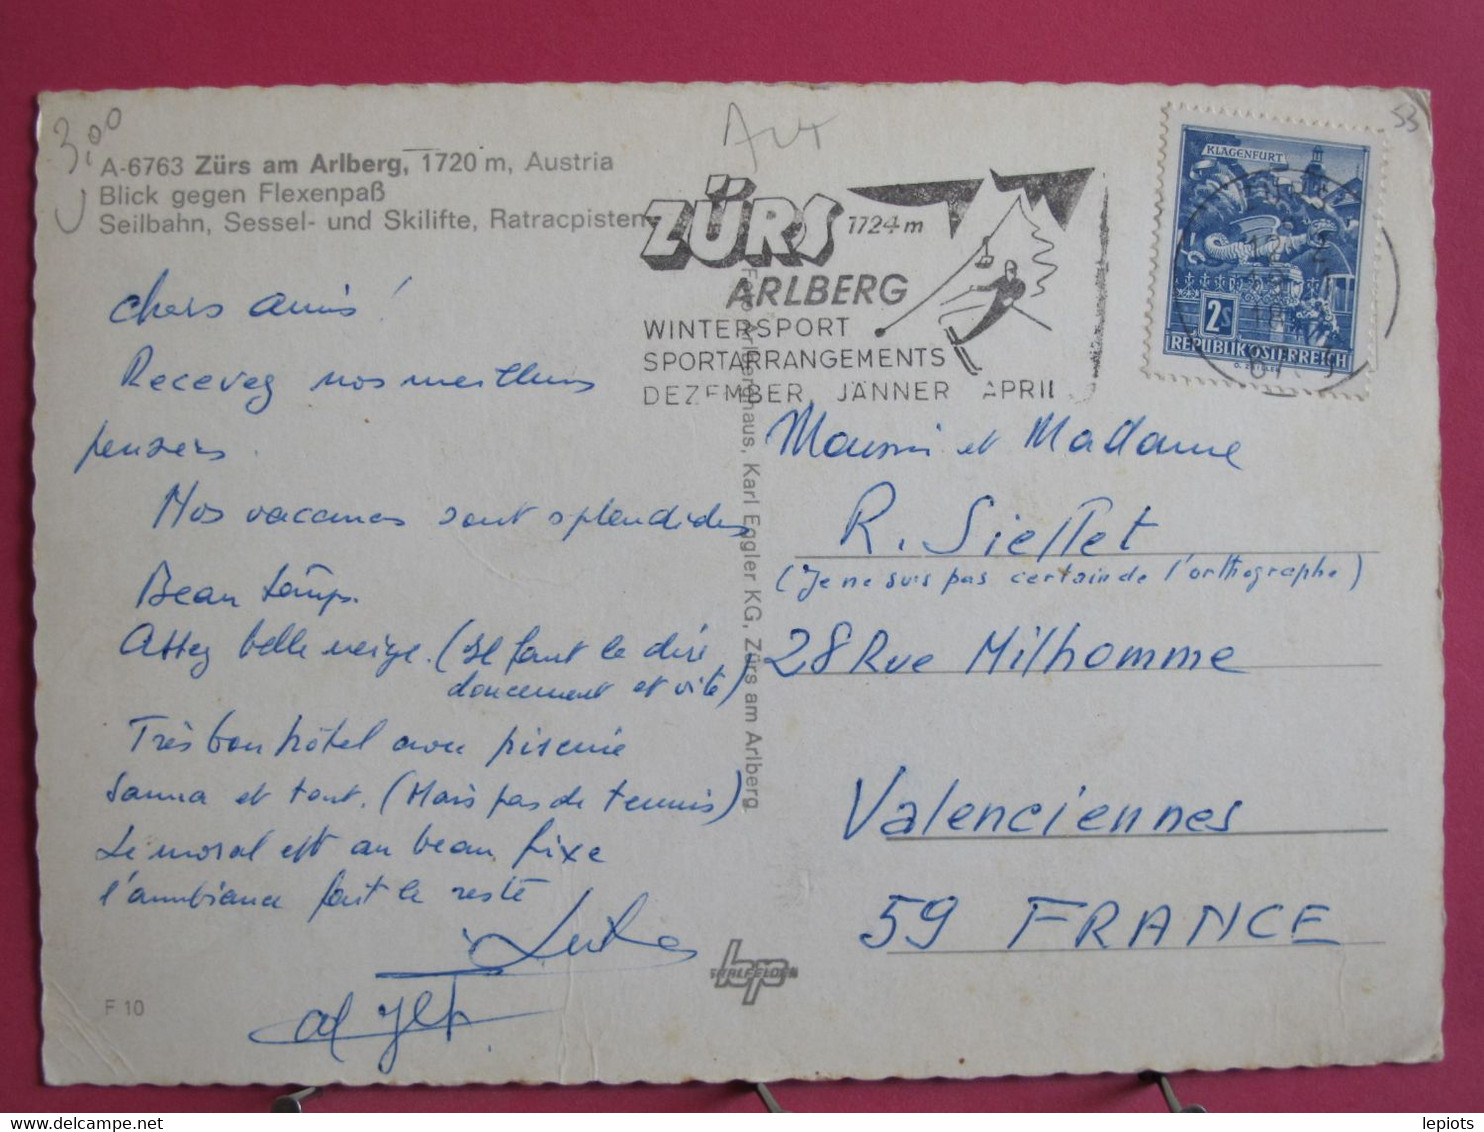 3,00
Aut
53
A-6763 Zürs am Arlberg, 1720 m, Austria
Blick gegen Flexenpaß
Seilbahn, Sessel- und Skilifte, Ratracpisten
ZÜRS 1724 m
ARLBERG
WINTERSPORT
SPORTARRANGEMENTS
DEZEMBER JÄNNER APRIL
KLAGENFURT
2s
REPUBLIK ÖSTERREICH
Chers amis
Recevez nos meilleurs
pensées.
Nos vacances sont splendides
Beau temps.
Assez belle neige. (Il faut le dire
doucement et vite)
Très bon hôtel avec piscine
sauna et tout. (Mais pas de tennis)
Le moral est au beau fixe
l'ambiance fait le reste
Foto Arlberghaus, Karl Eggler KG, Zürs am Arlberg
Monsieur et Madame
R. Sieffet
(Je ne suis pas certain de l'orthographe)
28 Rue Milhomme
Valenciennes
59 FRANCE
F 10
lepiots